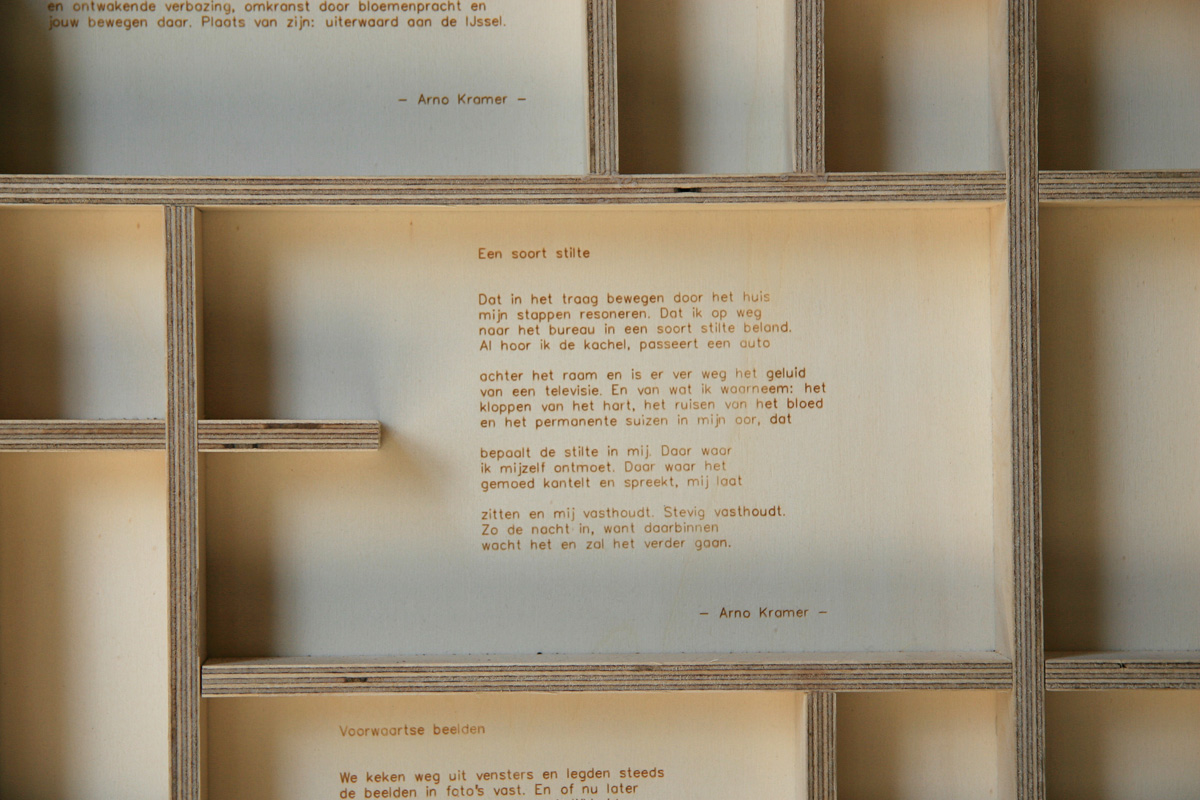 en ontwakende verbazing, omkranst door bloemenpracht en
jouw bewegen daar. Plaats van zijn: uiterwaard aan de IJssel.
– Arno Kramer –
Een soort stilte
Dat in het traag bewegen door het huis
mijn stappen resoneren. Dat ik op weg
naar het bureau in een soort stilte beland.
Al hoor ik de kachel, passeert een auto
achter het raam en is er ver weg het geluid
van een televisie. En van wat ik waarneem: het
kloppen van het hart, het ruisen van het bloed
en het permanente suizen in mijn oor, dat
bepaalt de stilte in mij. Daar waar
ik mijzelf ontmoet. Daar waar het
gemoed kantelt en spreekt, mij laat
zitten en mij vasthoudt. Stevig vasthoudt.
Zo de nacht in, want daarbinnen
wacht het en zal het verder gaan.
– Arno Kramer –
Voorwaartse beelden
We keken weg uit vensters en legden steeds
de beelden in foto's vast. En of nu later